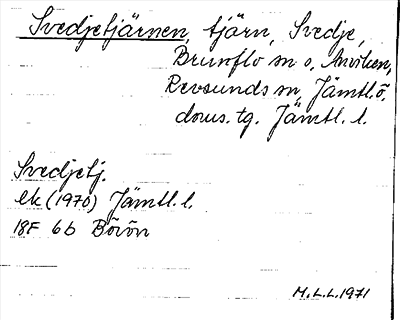 Svedjetjärnen, tjärn, Svedje,
Brunflo sn o, Anviken,
Revsunds sn, Jämtl. ö.
doms. tg. Jämtl. l.
Svedjetj.
ek (1970) Jämtl. l.
18F 6b Börön
M.L.L. 1971